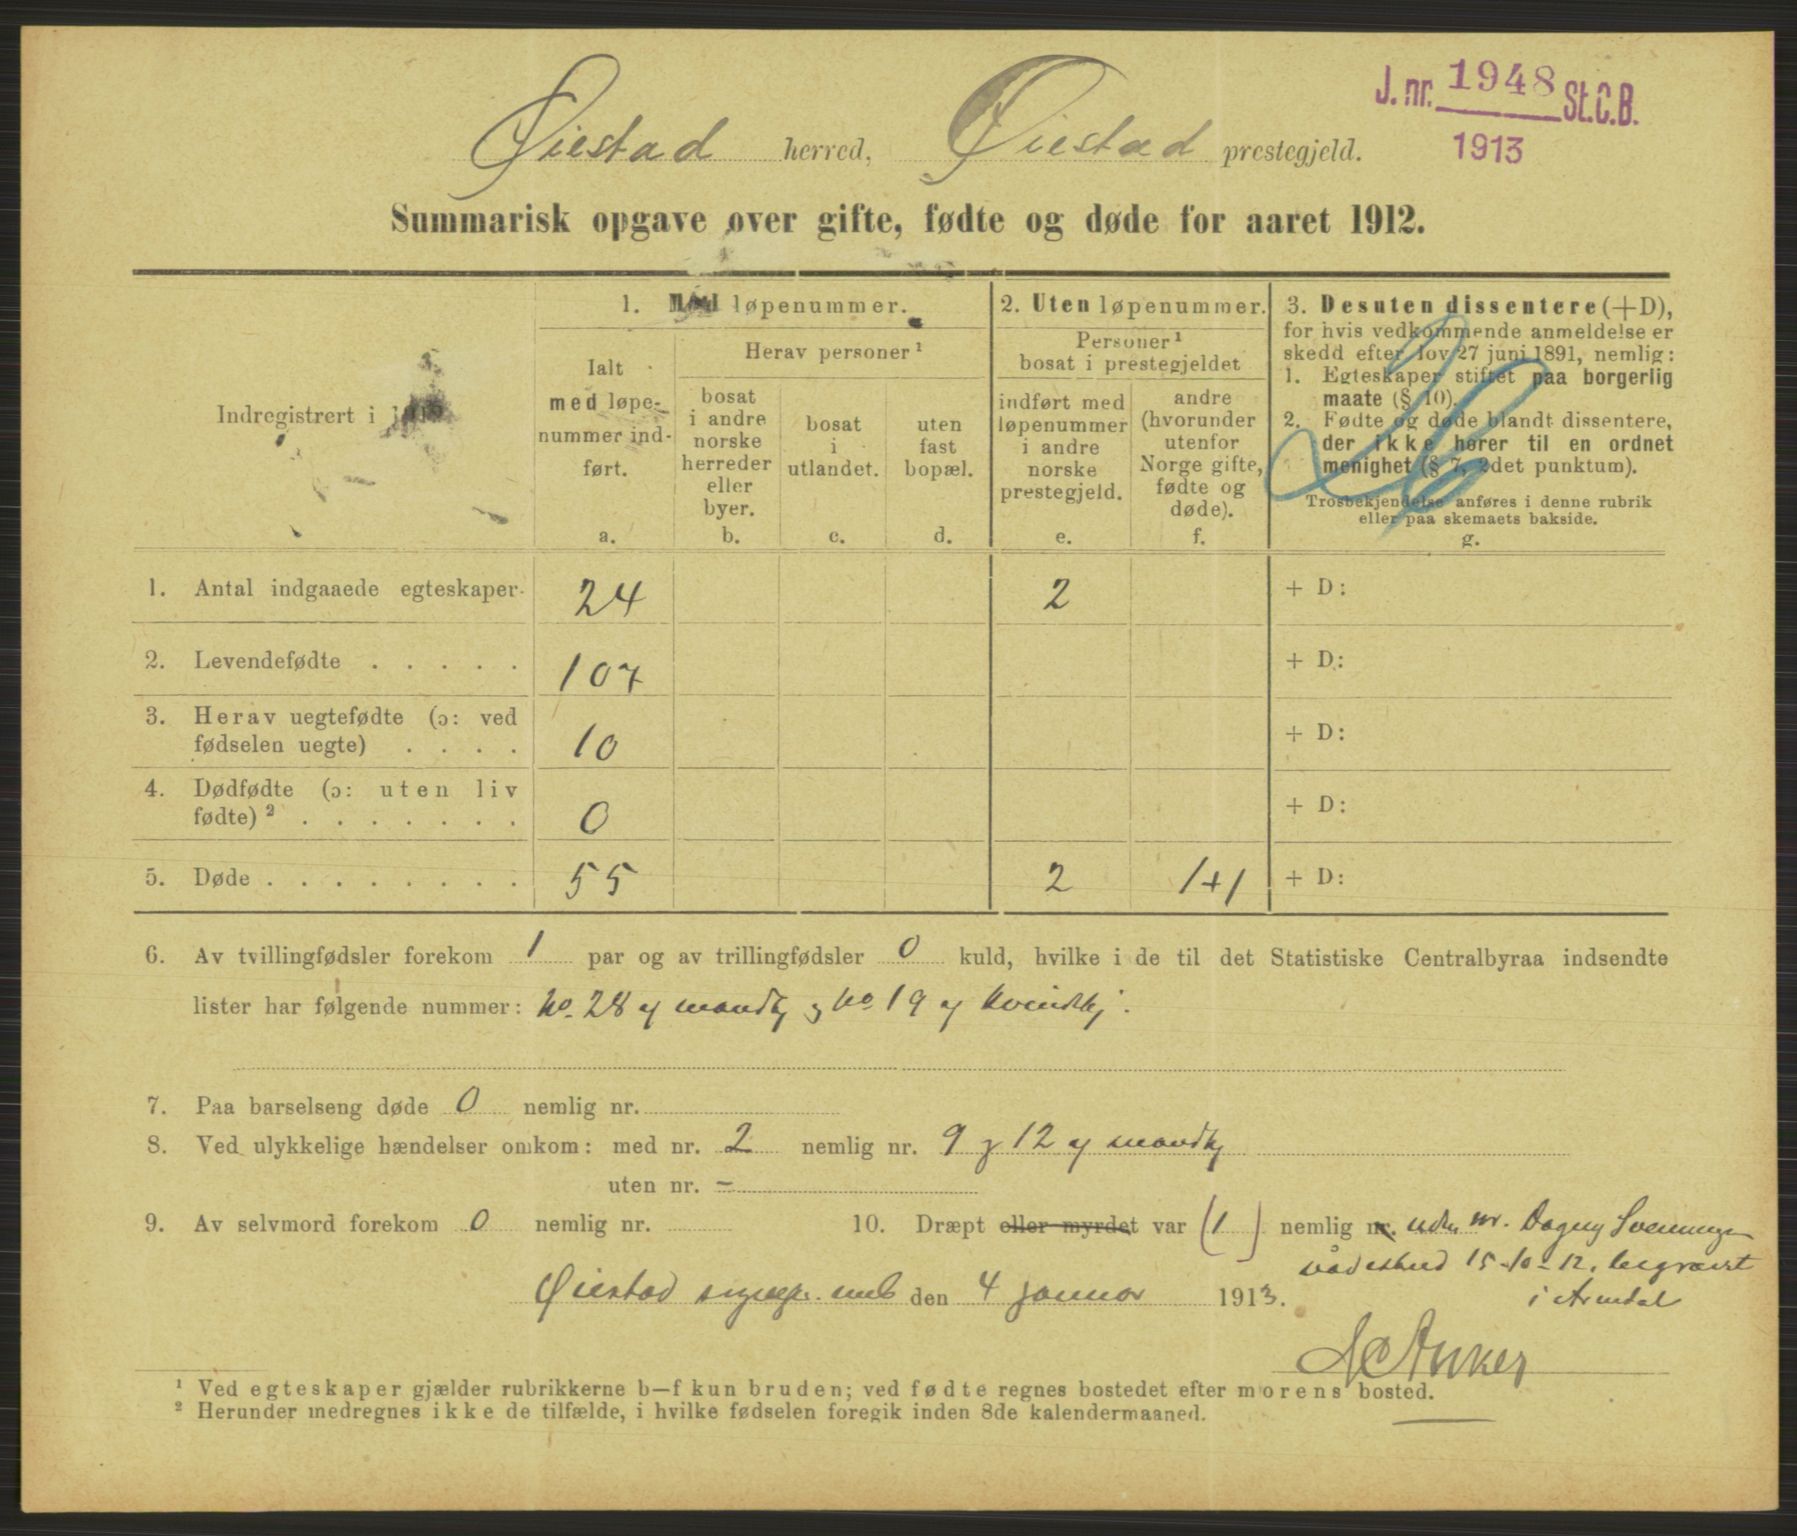 J. nr. 1948 St.C.B.
1913
Øiestad herred, Øiestad prestegjeld.
Summarisk opgave over gifte, fødte og døde for aaret 1912.
Indregistrert i
1. Med løpenummer.
Ialt
med løpe-
nummer ind-
ført.
a.
Herav personer¹
bosat
i andre
norske
herreder
eller
byer.
b.
bosat
i
utlandet.
c.
uten
fast
bopæl.
d.
2. Uten løpenummer.
Personer¹
bosat i prestegjeldet
indført med
løpenummer
i andre
norske
prestegjeld.
e.
andre
(hvorunder
utenfor
Norge gifte,
fødte og
døde).
f.
3. Desuten dissentere (+D),
for hvis vedkommende anmeldelse er
skedd efter lov 27 juni 1891, nemlig:
1. Egteskaper stiftet paa borgerlig
maate (§ 10).
2. Fødte og døde blandt dissentere,
der ikke hører til en ordnet
menighet (§ 7, 2det punktum).
Trosbekjendelse anføres i denne rubrik
eller paa skemaets bakside.
g.
1. Antal indgaaede egteskaper 24 2 + D:
2. Levendefødte . . . . . 107 + D:
3. Herav uegtefødte (ɔ: ved
fødselen uegte) . . . . 10 + D:
4. Dødfødte (ɔ: uten liv
fødte)² . . . . . . . 0 + D:
5. Døde . . . . . . . . 55 2 1+1 + D:
6. Av tvillingfødsler forekom 1 par og av trillingfødsler 0 kuld, hvilke i de til det Statistiske Centralbyraa indsendte
lister har følgende nummer: No. 28 af mandkj og No. 19 af kvindkj.
7. Paa barselseng døde 0 nemlig nr.
8. Ved ulykkelige hændelser omkom: med nr. 2 nemlig nr. 9 og 12 af mandkj
uten nr. –
9. Av selvmord forekom 0 nemlig nr.
10. Dræpt eller myrdet var (1) nemlig nr. uden nr. Dagny
15-10-12, begravet
i Arendal
Øiestad den 4 januar 1913.
Anker
¹ Ved egteskaper gjælder rubrikkerne b—f kun bruden; ved fødte regnes bostedet efter morens bosted.
² Herunder medregnes ikke de tilfælde, i hvilke fødselen foregik inden 8de kalendermaaned.